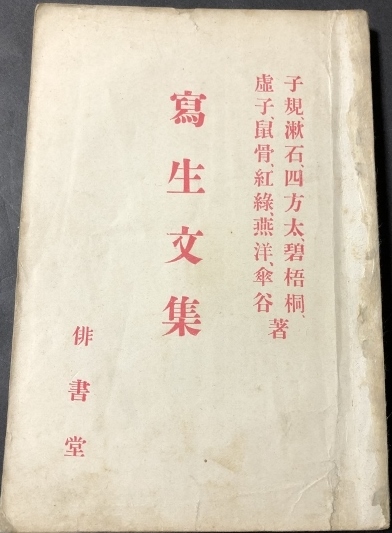 子規、漱石、四方太、碧梧桐、
虛子、鼠骨、紅綠、燕洋、傘谷 著
寫生文集
俳書堂